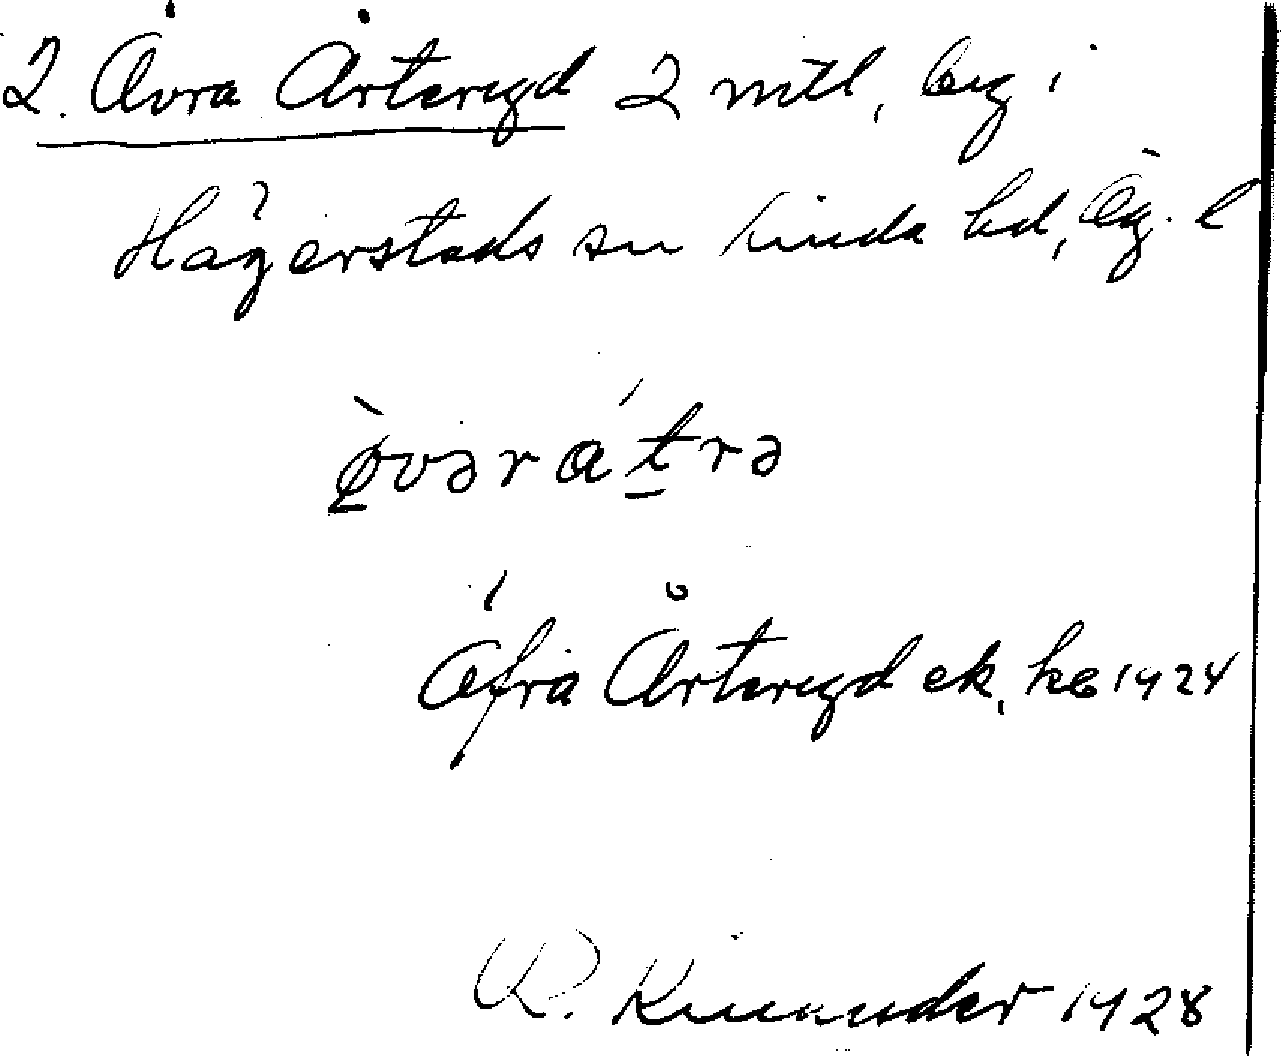 2. Övra Årteryd 2 mtl, by i
Hägerstads sn Kinda hd, Ög. l
òvərátrə
Öfra Årteryd ek, hc 1924
R. Kinander 1928